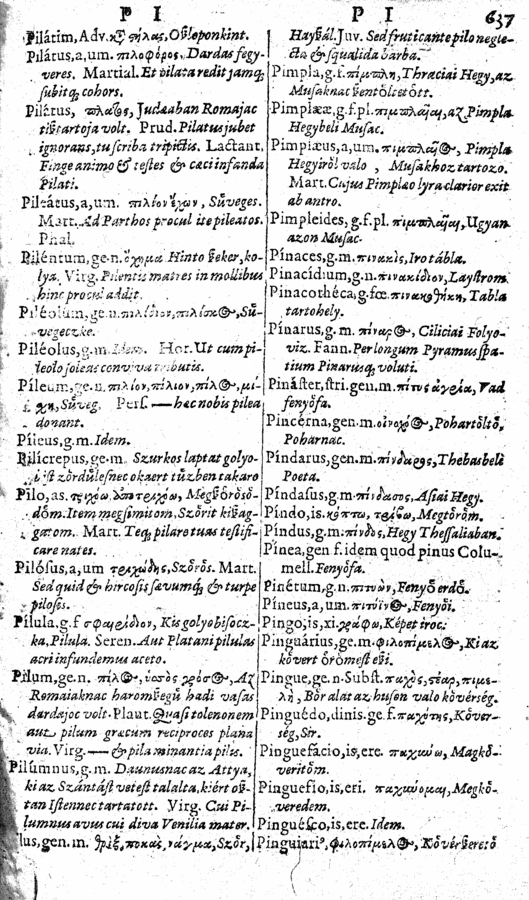 P I
P I 637
Pilátim, Adv. πίλας, Oſꝫleponkint.
Pilátus, a, um. πιλοφόρος, Dardas fegy-
veres. Martial. Et pilata redit jamq́;
ſubitq́; cohors.
Pilátus, Judæaban Romajac
tiſꝫtartoja volt. Prud. Pilatus jubet
ignorans, tu ſcriba tripictis. Lactant.
Finge animo & teſtes & cæci infanda
Pilati.
Pileátus, a, um. Sűveges.
Mart. Ad Parthos procul ite pileatos.
Pilentum, ge. n. ὄχημα Hinto ſꝫeker, ko-
lya. Virg. Pilentis matres in mollibus
hinc procul addit.
Piléolum, ge. n. Sű-
vegeczke.
Piléolus, g. m. Idem. Hor. Ut cum pi-
leolo ſoleas conviva tributis.
Píleum, ge. n. πιλίον, πίλιον,
Sűveg. Perſ. — hæc nobis pilea
donant.
Píleus, g. m. Idem.
Pilicrepus, ge. m. Szurkos laptat golyo-
biſt zördűleſnec okaert tűzben takaro
Pílo, as. Megſꝫőrőső-
dőm. Item megſimitom, Szőrit kiſꝫag-
gatom. Mart. Teq́; pilare tuas teſtifi-
care nates.
Pilóſus, a, um τριχώδης, Szőrős. Mart.
Sed quid & hircoſis ſævumq́; & turpe
piloſis.
Pílula, g. f σφαιρίδιον, Kis golyobiſocz-
ka, Pilula. Seren. Aut Platani pilulas
acri infundemus aceto.
Pílum, ge. n. Az
Romaiaknac haromſꝫegű hadi vaſas
dardajoc volt. Plaut. Quaſi tolenonem
aut pilum græcum reciproces plana
via. Virg. — & pila minantia pilis.
Pilúmnus, g. m. Daunusnac az Attya,
ki az Szántáſt veteſt talalta, kiért oſꝫ-
tan Iſtennec tartatott. Virg. Cui Pi-
lumnus avus cui diva Venilia mater.
lus, gen. m. Szőr,
Hayſꝫál. Juv. Sed fruticante pilo negle-
cta & ſqualida barba.
Pimpla, g. f. πίμπλη, Thraciai Hegy, az
Muſaknac ſꝫentőltetőtt.
Pimplææ, g. f. pl. az Pimpla
Hegybeli Muſac.
Pimplæus, a, um. Pimpla
Hegyiről valo, Muſakhoz tartozo.
Mart. Cujus Pimplæo lyra clarior exit
ab antro.
Pimpleides, g. f. pl. Ugyan
azon Muſac.
Pínaces, g. m. πινακὶς, Iro tábla.
Pinacídium, g. n. πινακίδιον, Layſtrom.
Pinacothéca, g. fœ. πινακοθήκη, Tabla
tartohely.
Pínarus, g. m. Ciliciai Folyo-
viz. Fann. Per longum Pyramus ſpa-
tium Pinaruſq́; voluti.
Pináſter, ſtri. gen. m. πίτυς ἀγρία, Vad
fenyőfa.
Pincérna, gen. m. οἰνοχό, Pohartőltő,
Poharnac.
Píndarus, gen. m. πίνδαρος, Thebasbeli
Poeta.
Píndaſus, g. m. πίνδασος, Aſiai Hegy.
Píndo, is. κόπτω, τρίβω, Megtőrőm.
Píndus, g. m. πίνδος, Hegy Theſſaliaban.
Pínea, gen f. idem quod pinus Colu-
mell. Fenyőfa.
Pinétum, g. n. πιτυὼν, Fenyő erdő.
Píneus, a, um. Fenyői.
Pingo, is, xi. γράφω, Képet iroc.
Pinguárius, ge. m. Ki az
kővért őrőmeſt eſꝫi.
Pingue, ge. n. Subſt. πάχος, στέαρ, πιμε-
λὴ, Bőr alat az huſon valo kővérség.
Pinguédo, dinis. ge. f. παχύτης, Kőver-
ség, Sír.
Pinguefácio, is, ere. παχύνω, Magkő-
veritőm.
Pinguefio, is, eri. παχύνομαι, Megkő-
veredem.
Pinguéſco, is, ere. Idem.
Pinguiari⁹, Kővérſꝫerető